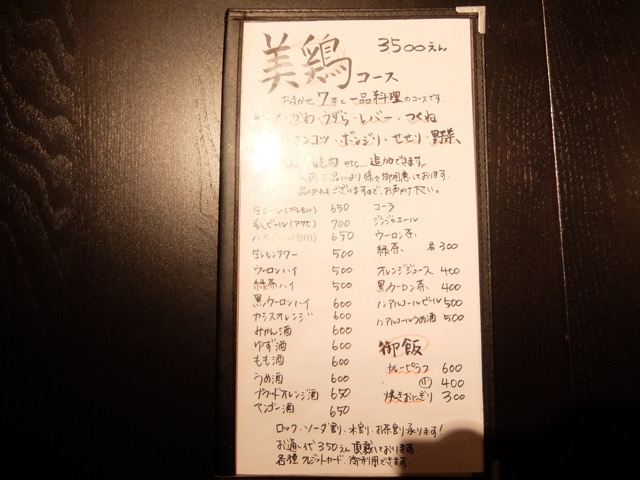 美鶏コース 3500えん
おまかせ7本と一品料理のコースです。
かわ・うずら・レバー・つくね
ナンコツ・ボンジリ・せせり・野菜、
焼肉 etc... 追加できます。
入荷 品により様々御用意しております。
品切れもございますので、お声かけ下さい。
生ビール(プレモル) 650
瓶ビール(アサヒ) 700
650
生レモンサワー 500
ウーロンハイ 500
緑茶ハイ 500
黒ウーロンハイ 600
カシスオレンジ 600
みかん酒 600
ゆず酒 600
もも酒 600
うめ酒 600
ブラッドオレンジ酒 650
マンゴー酒 650
コーラ
ジンジャエール
ウーロン茶
緑茶 各300
オレンジジュース 400
黒ウーロン茶 400
ノンアルコールビール 500
ノンアルコールうめ酒 500
御飯
カレーピラフ 600
(小) 400
焼きおにぎり 300
ロック、ソーダ割、水割、お茶割承ります!
お通し代350えん頂戴しております。
各種クレジットカード、御利用できます。